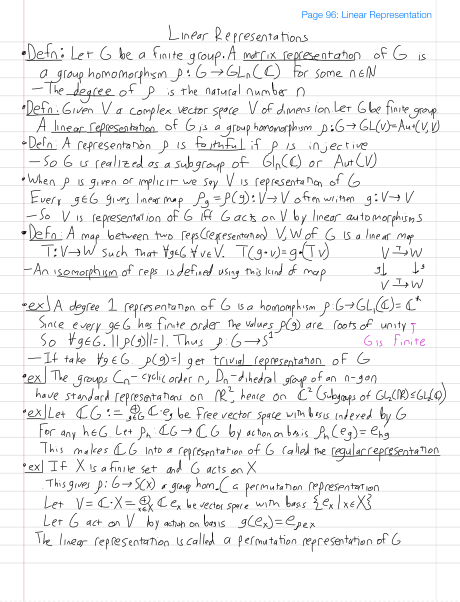 Page 96: Linear Representation
Linear Representations
• Defn: Let G be a finite group. A matrix representation of G is
a group homomorphism ρ: G → GLn(ℂ) for some n∈ℕ
– The degree of ρ is the natural number n
• Defn: Given V a complex vector space V of dimension. Let G be finite group
A linear representation of G is a group homomorphism ρ: G → GL(V) = Aut(V,V)
• Defn: A representation ρ is faithful if ρ is injective
– So G is realized as a subgroup of Gln(ℂ) or Aut(V)
• When ρ is given or implicit we say V is representation of G
Every g∈G gives linear map ρg = ρ(g): V → V often written g: V → V
– So V is representation of G iff G acts on V by linear automorphisms
• Defn: A map between two reps (representation) V, W of G is a linear map
T: V → W Such that ∀g∈G ∀v∈V. T(g•v) = g•(Tv) V T→ W
– An isomorphism of reps is defined using this kind of map g↓ ↓g
V T→ W
• ex| A degree 1 representation of G is a homomphism ρ: G → GL1(ℂ) = ℂ*
Since every g∈G has finite order the values ρ(g) are roots of unity ↑
So ∀g∈G. ||ρ(g)|| = 1. Thus ρ: G → S¹ G is Finite
– If take ∀g∈G. ρ(g) = 1 get trivial representation of G
• ex| The groups Cn – cyclic order n, Dn – dihedral group of an n-gon
have standard representations on ℝ², hence on ℂ² (subgroups of GL2(ℝ) ≤ GL2(ℂ))
• ex| Let ℂG := ⊕g∈G ℂ•eg be free vector space with basis indexed by G
For any h∈G. Let ρh: ℂG → ℂG by action on basis ρh(eg) = ehg
This makes ℂG into a representation of G called the regular representation
• ex| If X is a finite set and G acts on X
This gives ρ: G → S(X) a group hom. (a permutation representation
Let V = ℂ•X = ⊕x∈X ℂex be vector space with basis {ex | x∈X}
Let G act on V by action on basis g(ex) = eρgx
The linear representation is called a permutation representation of G